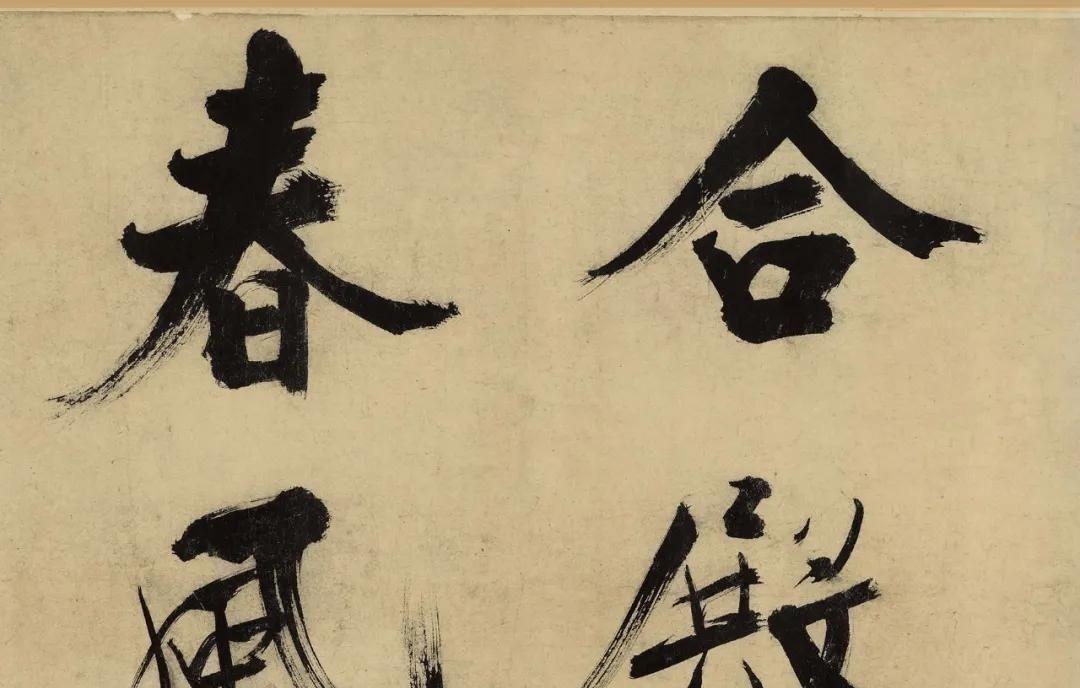 合殿
春風